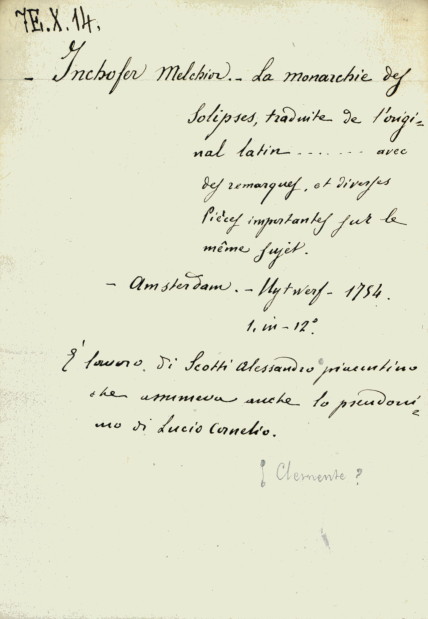 7E.X.14.
- Inchofer Melchior. - La monarchie des
Solipses, traduite de l'origi=
nal latin ....... avec
des remarques, et diverses
Pièces importantes sur le
même sujet.
- Amsterdam. - Uytwerf - 1754.
1. in - 12°.
È lavoro di Scotti Alessandro piacentino
che assumeva anche lo pseudoni=
mo di Lucio Cornelio.
Clemente?